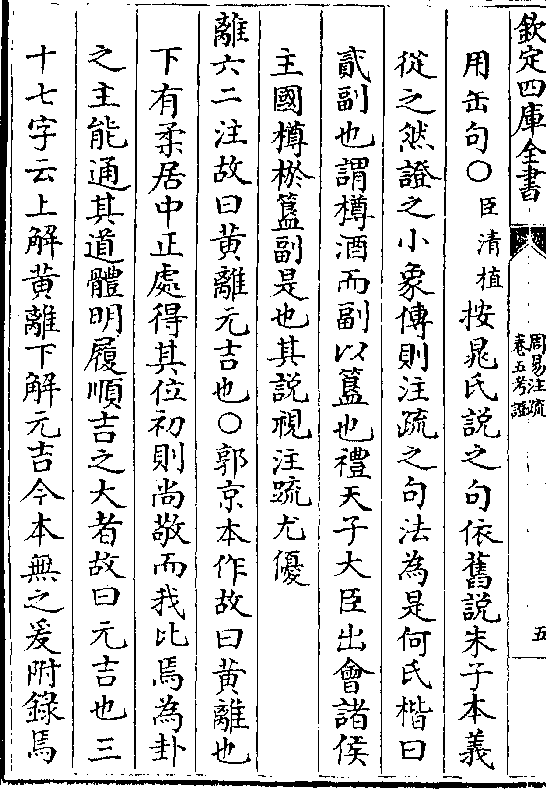 欽定四庫全書
周易注疏
卷五考證
五
用缶句〇臣清植按晁氏說之句依舊說朱子本義
從之然證之小象傳則注疏之句法為是何氏楷曰
貳副也謂樽酒而副以簋也禮天子大臣出會諸侯
主國樽棜簋副是也其說視注疏尤優
離六二注故曰黃離元吉也〇郭京本作故曰黃離也
下有柔居中正處得其位初則尚敬而我比焉為卦
之主能通其道體明履順吉之大者故曰元吉也三
十七字云上解黃離下解元吉今本無之爰附錄焉